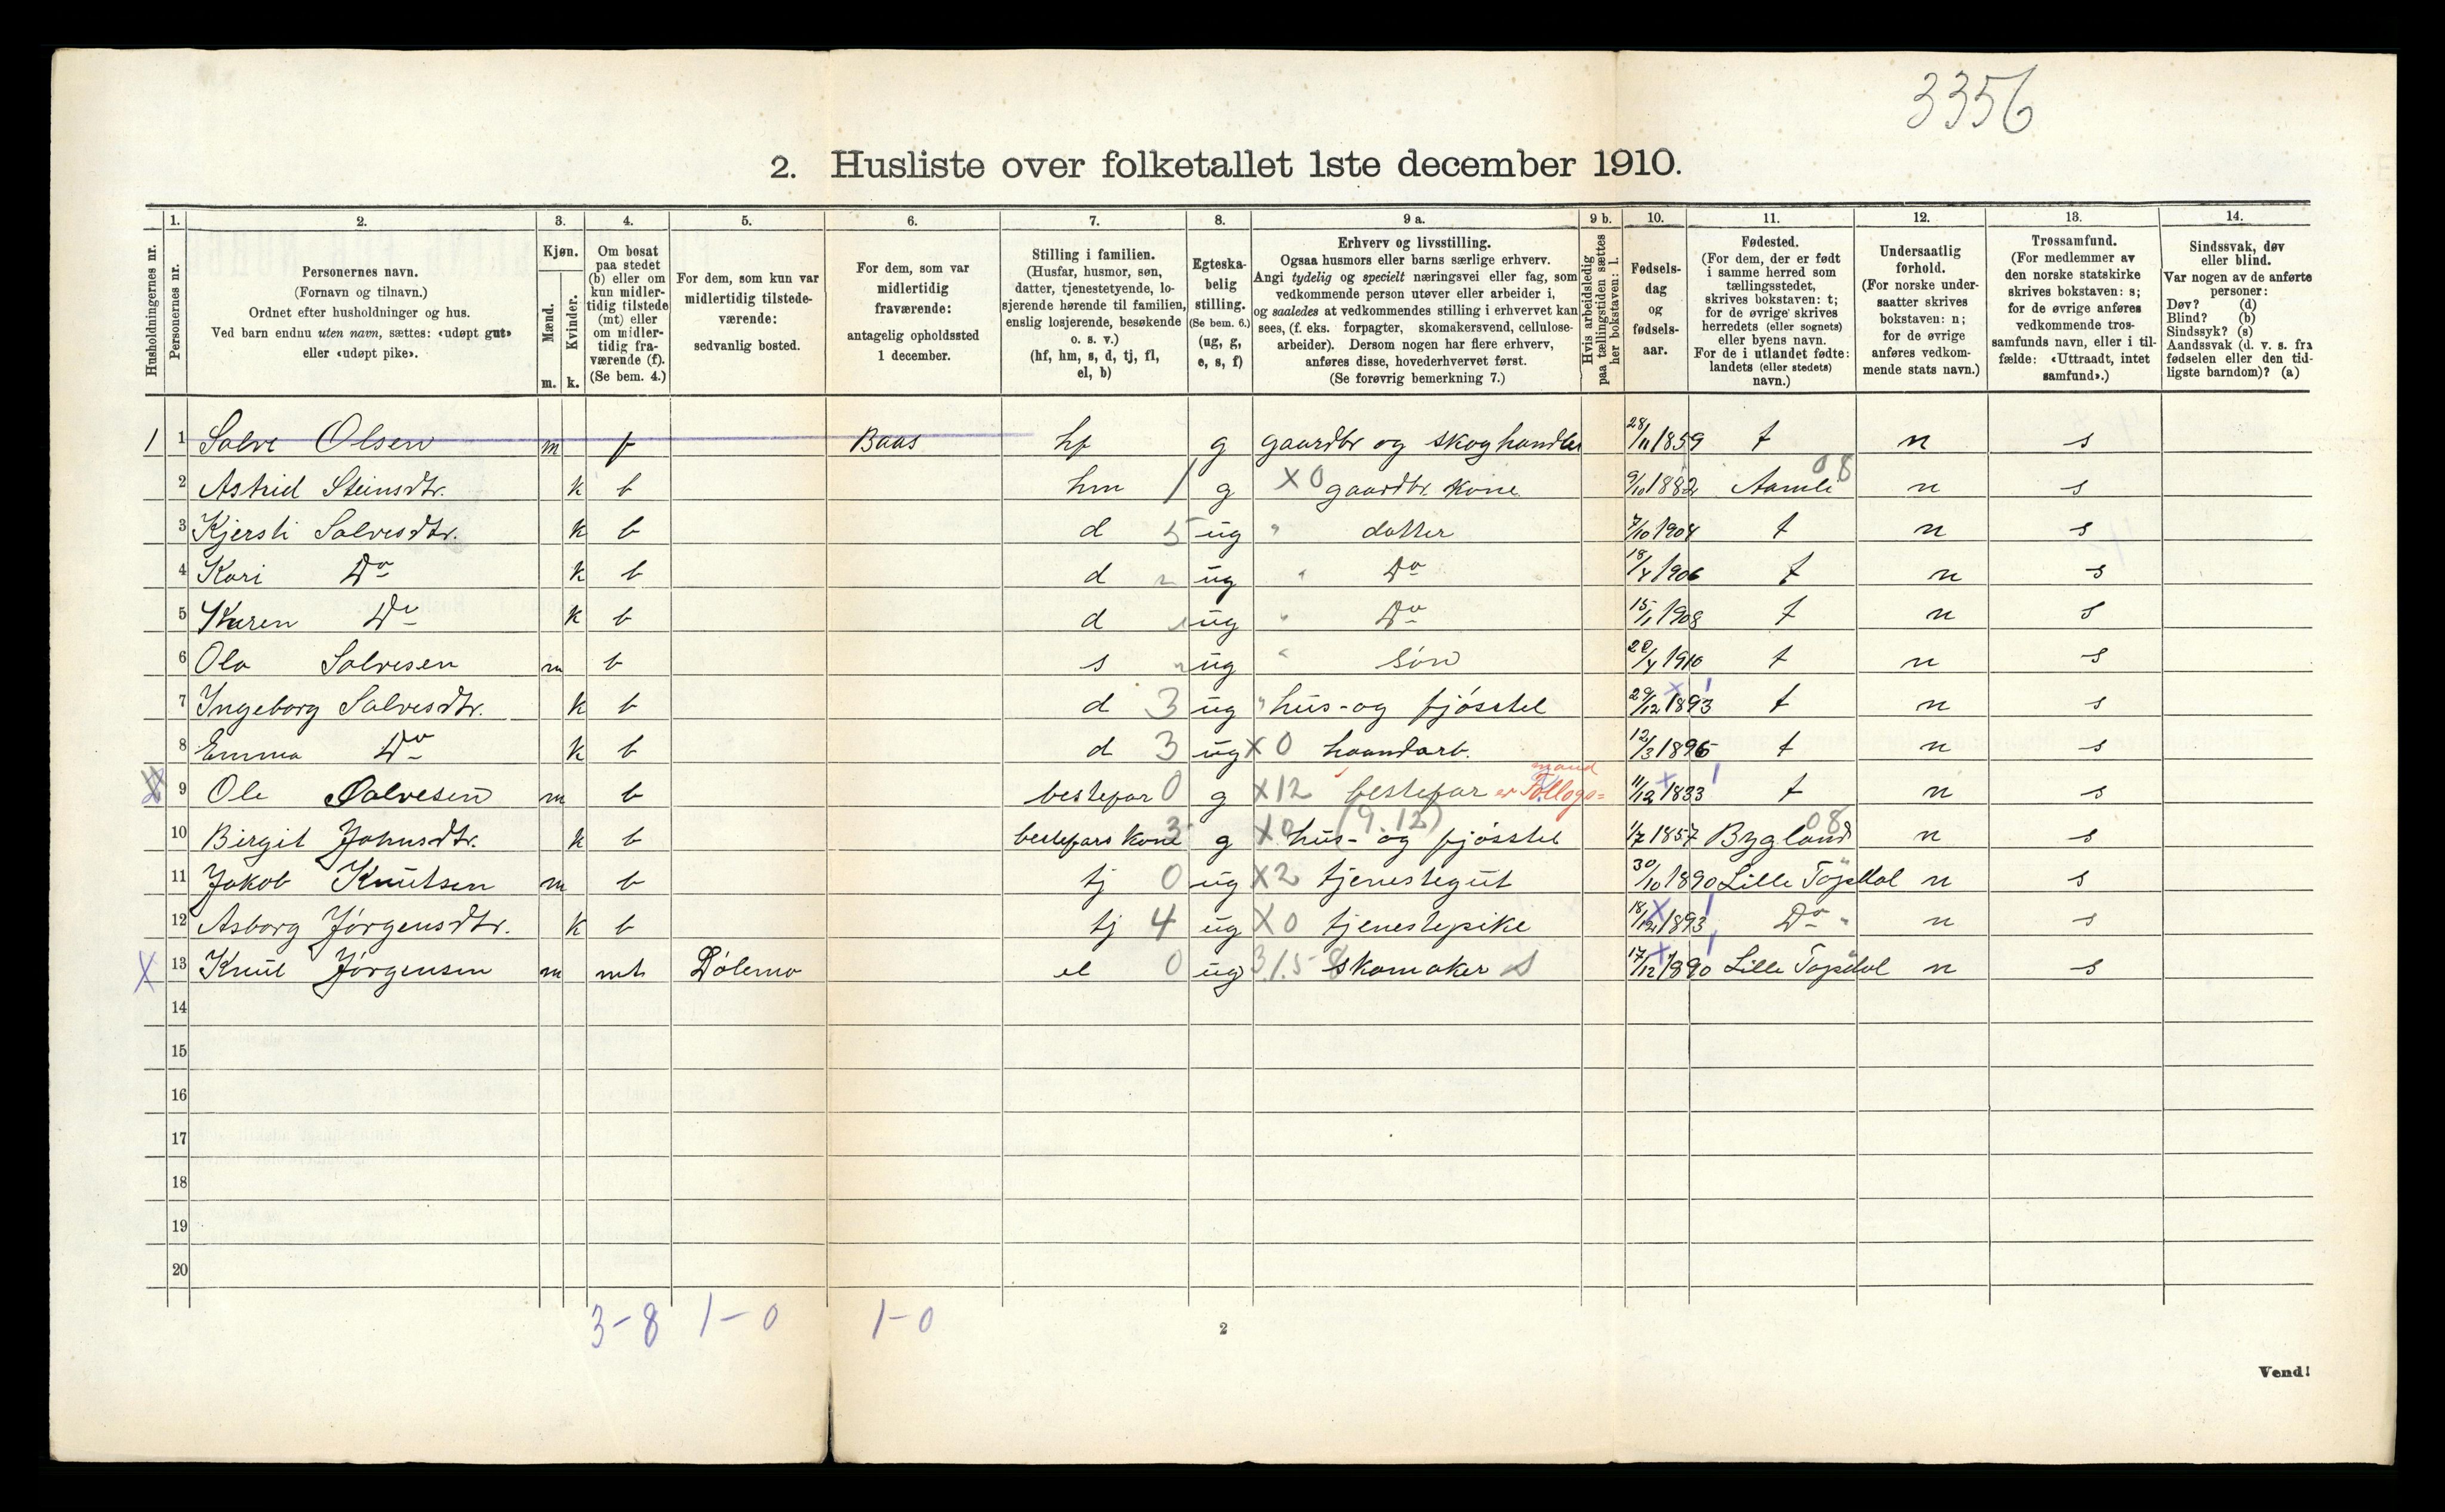 3356
2. Husliste over folketallet 1ste december 1910.
Husholdningernes nr.
1.
Personernes nr.
2.
Personernes navn.
(Fornavn og tilnavn.)
Ordnet efter husholdninger og hus.
Ved barn endnu uten navn, sættes: «udøpt gut»
eller «udøpt pike».
3.
Kjøn.
Mænd.
Kvinder.
m. k.
4.
Om bosat
paa stedet
(b) eller om
kun midler-
tidig tilstede
(mt) eller
om midler-
tidig fra-
værende (f).
(Se bem. 4.)
5.
For dem, som kun var
midlertidig tilstede-
værende:
sedvanlig bosted.
6.
For dem, som var
midlertidig
fraværende:
antagelig opholdssted
1 december.
7.
Stilling i familien.
(Husfar, husmor, søn,
datter, tjenestetyende, lo-
sjerende hørende til familien,
enslig losjerende, besøkende
o. s. v.)
(hf, hm, s, d, tj, fl,
el, b)
8.
Egteska-
belig
stilling.
(Se bem. 6.)
(ug, g,
e, s, f)
9 a.
Erhverv og livsstilling.
Ogsaa husmors eller barns særlige erhverv.
Angi tydelig og specielt næringsvei eller fag, som
vedkommende person utøver eller arbeider i,
og saaledes at vedkommendes stilling i erhvervet kan
sees, (f. eks. forpagter, skomakersvend, cellulose-
arbeider). Dersom nogen har flere erhverv,
anføres disse, hovederhvervet først.
(Se forøvrig bemerkning 7.)
9 b.
Hvis arbeidsledig
paa tællingstiden sættes
her bokstaven: l.
10.
Fødsels-
dag
og
fødsels-
aar.
11.
Fødested.
(For dem, der er født
i samme herred som
tællingsstedet,
skrives bokstaven: t;
for de øvrige skrives
herredets (eller sognets)
eller byens navn.
For de i utlandet fødte:
landets (eller stedets)
navn.)
12.
Undersaatlig
forhold.
(For norske under-
saatter skrives
bokstaven: n;
for de øvrige
anføres vedkom-
mende stats navn.)
13.
Trossamfund.
(For medlemmer av
den norske statskirke
skrives bokstaven: s;
for de øvrige anføres
vedkommende tros-
samfunds navn, eller i til-
fælde: «Uttraadt, intet
samfund».)
14.
Sindssvak, døv
eller blind.
Var nogen av de anførte
personer:
Døv? (d)
Blind? (b)
Sindssyk? (s)
Aandssvak (d. v. s. fra
fødselen eller den tid-
ligste barndom)? (a)
1 1 Salve Olsen m f Baas hf g gaardbr og skoghandler 28/11 1859 t n s
2 Astrid Steinsdtr. k b hm 1 g X 0 gaardbr. kone 9/10 1882 Aamli 08 n s
3 Kjersti Salvesdtr. k b d 5 ug " datter 7/10 1904 t n s
4 Kari Do k b d ug " Do 18/4 1906 t n s
5 Karen Do k b d ug " Do 15/1 1908 t n s
6 Ola Salvesen m b s ug " søn 1910 t n s
7 Ingeborg Salvesdtr. k b d 3 ug " hus- og fjøsstel 29/12 1893 t n s
8 Emma Do k b d 3 ug X 0 haandarb. 12/3 1896 t n s
9 Ole Salvesen m b bestefar 0 g X12 bestefar er Føllogs= mand 11/12 1833 t n s
(9.12)
10 Birgit Johnsdtr. k b bestefars kone 3 g X0 hus- og fjøsstel 1/7 1857 Bygland 08 n s
11 Jakob Knutsen m b tj 0 ug X2 tjenestegut 30/10 1890 Lille Topdal n s
12 Asborg Jörgensdtr. k b tj 4 ug X0 tjenestepike 18/12 1893 Do " n s
X 13 Knut Jörgensen m mt Dölemo el 0 ug 31.58 skomaker S 17/12 1890 Lille Topdal n s
14
15
16
17
18
19
20
3-8 1-0 1-0
2
Vend!